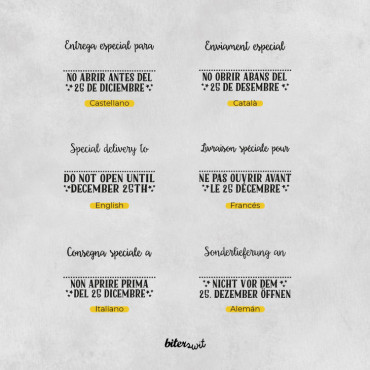 Entrega especial para
NO ABRIR ANTES DEL
25 DE DICIEMBRE
Castellano
Enviament especial
NO OBRIR ABANS DEL
25 DE DESEMBRE
Català
Special delivery to
DO NOT OPEN UNTIL
DECEMBER 25TH
English
Livraison spéciale pour
NE PAS OUVRIR AVANT
LE 25 DÉCEMBRE
Francés
Consegna speciale a
NON APRIRE PRIMA
DEL 25 DICEMBRE
Italiano
Sonderlieferung an
NICHT VOR DEM
25. DEZEMBER ÖFFNEN
Alemán
biterswit